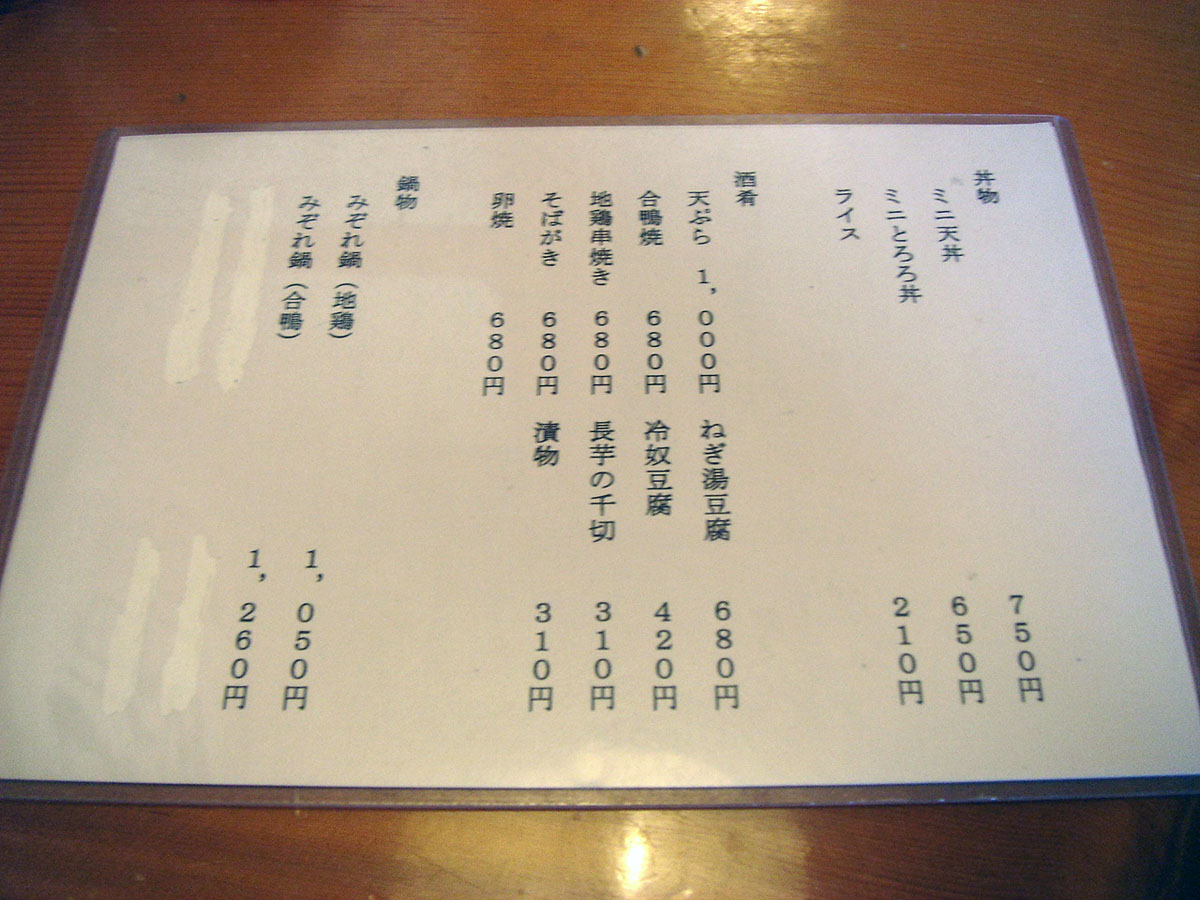 丼物
ミニ天丼 750円
ミニとろろ丼 650円
ライス 210円
酒肴
天ぷら 1,000円 ねぎ湯豆腐 680円
合鴨焼 680円 冷奴豆腐 420円
地鶏串焼き 680円 長芋の千切 310円
そばがき 680円 漬物 310円
卵焼 680円
鍋物
みぞれ鍋(地鶏) 1,050円
みぞれ鍋(合鴨) 1,260円